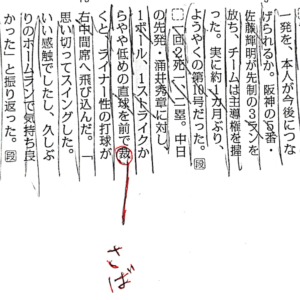 一発を、本人が今後につな
げられるか。阪神の5番・
佐藤輝明が先制の3ランを
放ち、チームは主導権を握
った。実に約1カ月ぶり、
ようやくの第10号だった。
1回2死一、二塁。中日
の先発・涌井秀章に対し、
ボール、1ストライクか
らやや低めの直球を前で裁
くと、ライナー性の打球が
右中間席へ飛び込んだ。「
思い切ってスイングした。
いい感触でしたし、久しぶ
りのホームランで気持ち良
かった」と振り返った。
さば